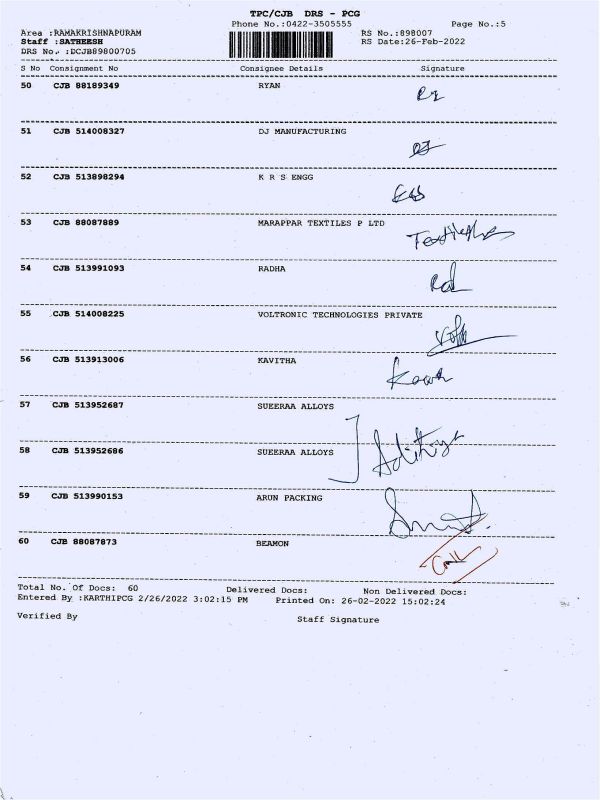 TPC/CJB DRS - PCG
Phone No.:0422-3505555 Page No.:5
Area :RAMAKRISHNAPURAM RS No.:898007
Staff :SATHEESH RS Date:26-Feb-2022
DRS No. :DCJB89800705
S No Consignment No Consignee Details Signature
50 CJB 88189349 RYAN
51 CJB 514008327 DJ MANUFACTURING
DJ
52 CJB 513898294 K R S ENGG
53 CJB 88087889 MARAPPAR TEXTILES P LTD
Textiles
54 CJB 513991093 RADHA
Rd
55 CJB 514008225 VOLTRONIC TECHNOLOGIES PRIVATE
Volt
56 CJB 513913006 KAVITHA
57 CJB 513952687 SUEERAA ALLOYS
58 CJB 513952686 SUEERAA ALLOYS
Adithya
59 CJB 513990153 ARUN PACKING
60 CJB 88087873 BEAMON
Total No. Of Docs: 60 Delivered Docs: Non Delivered Docs:
Entered By :KARTHIPCG 2/26/2022 3:02:15 PM Printed On: 26-02-2022 15:02:24
Verified By Staff Signature